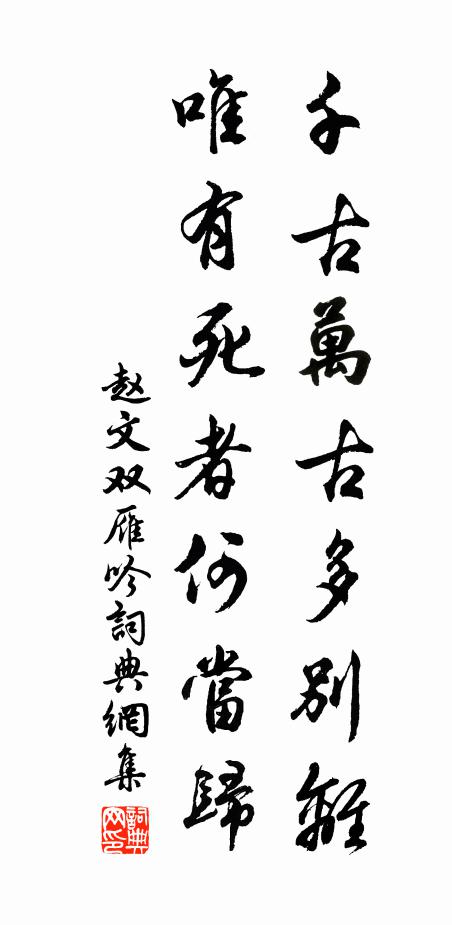 千古萬古多別離
唯有死者何當歸
赵文双雁吟詞典網集
詞典網印